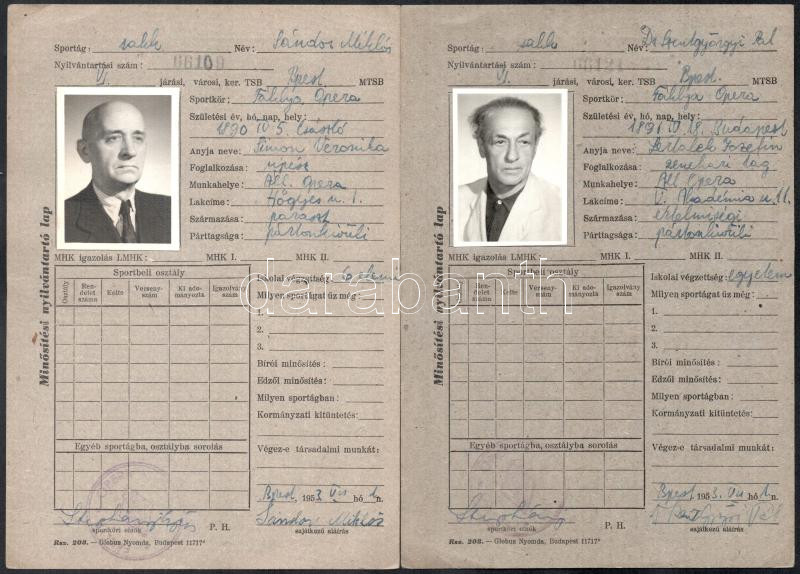 Sportág: sakk Név: Sándor Miklós
Nyilvántartási szám:
VI. járási, városi, ker. TSB Bpest MTSB
Sportkör: Fáklya Opera
Születési év, hó, nap, hely:
1890 IV. 5. Császló
Anyja neve: Simon Veronika
Foglalkozása:
Munkahelye: Áll. Opera
Lakcíme: Hőgyes u. 1.
Származása: paraszt
Párttagsága: pártonkívüli
MHK igazolás LMHK: MHK I. MHK II.
Minősítési nyilvántartó lap
Sportbeli osztály
Osztály Rendelet száma Kelte Versenyszám Ki adományozta Igazolvány szám
Iskolai végzettség: 6 elemi
Milyen sportágat űz még:
1.
2.
3.
Bírói minősítés:
Edzői minősítés:
Milyen sportágban:
Kormányzati kitüntetés:
Egyéb sportágba, osztályba sorolás
Végez-e társadalmi munkát:
Bpest, 1953 VII hó 1. n.
P. H. Sándor Miklós
sportköri elnök sajátkezű aláírás
Rsz. 208. — Globus Nyomda, Budapest 11717*
Sportág: sakk Név: Dr Szentgyörgyi Pál
Nyilvántartási szám:
VI. járási, városi, ker. TSB Bpest. MTSB
Sportkör: Fáklya Opera
Születési év, hó, nap, hely:
1891 IV. 18. Budapest
Anyja neve: Jozefin
Foglalkozása: zenekari tag
Munkahelye: Áll Opera
Lakcíme: V. Akadémia u. 11.
Származása: értelmiségi
Párttagsága: pártonkívüli
MHK igazolás LMHK: MHK I. MHK II.
Minősítési nyilvántartó lap
Sportbeli osztály
Osztály Rendelet száma Kelte Versenyszám Ki adományozta Igazolvány szám
Iskolai végzettség: egyetem
Milyen sportágat űz még:
1.
2.
3.
Bírói minősítés:
Edzői minősítés:
Milyen sportágban:
Kormányzati kitüntetés:
Egyéb sportágba, osztályba sorolás
Végez-e társadalmi munkát:
Bpest, 1953. VII hó 1. n.
P. H.
sportköri elnök sajátkezű aláírás
Rsz. 208. — Globus Nyomda, Budapest 11717*
darabanth